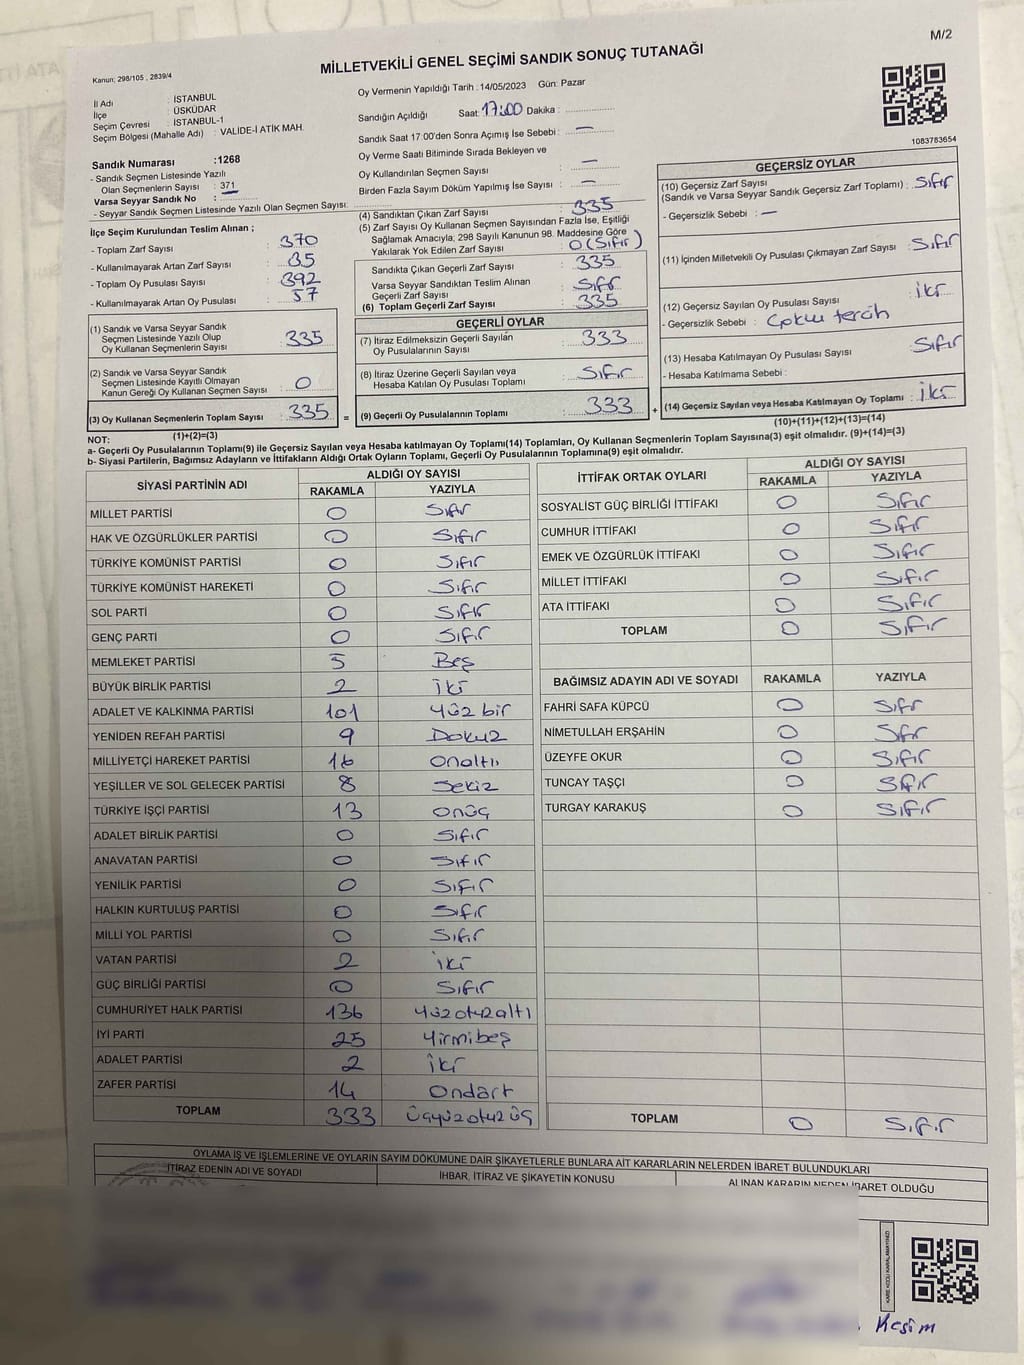 M/2
MİLLETVEKİLİ GENEL SEÇİMİ SANDIK SONUÇ TUTANAĞI
Kanun; 298/105 , 2839/4
İl Adı : İSTANBUL
İlçe : ÜSKÜDAR
Seçim Çevresi : İSTANBUL-1
Seçim Bölgesi (Mahalle Adı) : VALİDE-İ ATİK MAH.
Sandık Numarası :1268
- Sandık Seçmen Listesinde Yazılı
Olan Seçmenlerin Sayısı : 371
Varsa Seyyar Sandık No :
- Seyyar Sandık Seçmen Listesinde Yazılı Olan Seçmen Sayısı:
Oy Vermenin Yapıldığı Tarih :14/05/2023 Gün: Pazar
Sandığın Açıldığı Saat: 17:00 Dakika :
Sandık Saat 17.00'den Sonra Açımış İse Sebebi : —
Oy Verme Saati Bitiminde Sırada Bekleyen ve
Oy Kullandırılan Seçmen Sayısı : —
Birden Fazla Sayım Döküm Yapılmış İse Sayısı : —
1083783654
İlçe Seçim Kurulundan Teslim Alınan ;
- Toplam Zarf Sayısı : 370
- Kullanılmayarak Artan Zarf Sayısı : 35
- Toplam Oy Pusulası Sayısı : 392
- Kullanılmayarak Artan Oy Pusulası : 57
(1) Sandık ve Varsa Seyyar Sandık
Seçmen Listesinde Yazılı Olup
Oy Kullanan Seçmenlerin Sayısı : 335
(2) Sandık ve Varsa Seyyar Sandık
Seçmen Listesinde Kayıtlı Olmayan
Kanun Gereği Oy Kullanan Seçmen Sayısı : 0
(3) Oy Kullanan Seçmenlerin Toplam Sayısı : 335 =
(1)+(2)=(3)
(4) Sandıktan Çıkan Zarf Sayısı : 335
(5) Zarf Sayısı Oy Kullanan Seçmen Sayısından Fazla İse, Eşitliği
Sağlamak Amacıyla, 298 Sayılı Kanunun 98. Maddesine Göre
Yakılarak Yok Edilen Zarf Sayısı : 0 (Sıfır)
Sandıkta Çıkan Geçerli Zarf Sayısı : 335
Varsa Seyyar Sandıktan Teslim Alınan
Geçerli Zarf Sayısı : Sıfır
(6) Toplam Geçerli Zarf Sayısı : 335
GEÇERLİ OYLAR
(7) İtiraz Edilmeksizin Geçerli Sayılan
Oy Pusulalarının Sayısı : 333
(8) İtiraz Üzerine Geçerli Sayılan veya
Hesaba Katılan Oy Pusulası Toplamı : Sıfır
(9) Geçerli Oy Pusulalarının Toplamı : 333 +
GEÇERSİZ OYLAR
(10) Geçersiz Zarf Sayısı
(Sandık ve Varsa Seyyar Sandık Geçersiz Zarf Toplamı) : Sıfır
- Geçersizlik Sebebi : —
(11) İçinden Milletvekili Oy Pusulası Çıkmayan Zarf Sayısı : Sıfır
(12) Geçersiz Sayılan Oy Pusulası Sayısı : iki
- Geçersizlik Sebebi : Çoklu tercih
(13) Hesaba Katılmayan Oy Pusulası Sayısı : Sıfır
- Hesaba Katılmama Sebebi :
(14) Geçersiz Sayılan veya Hesaba Katılmayan Oy Toplamı : iki
(10)+(11)+(12)+(13)=(14)
NOT:
a- Geçerli Oy Pusulalarının Toplamı(9) ile Geçersiz Sayılan veya Hesaba katılmayan Oy Toplamı(14) Toplamları, Oy Kullanan Seçmenlerin Toplam Sayısına(3) eşit olmalıdır. (9)+(14)=(3)
b- Siyasi Partilerin, Bağımsız Adayların ve İttifakların Aldığı Ortak Oyların Toplamı, Geçerli Oy Pusulalarının Toplamına(9) eşit olmalıdır.
SİYASİ PARTİNİN ADI ALDIĞI OY SAYISI
RAKAMLA YAZIYLA
MİLLET PARTİSİ 0 Sıfır
HAK VE ÖZGÜRLÜKLER PARTİSİ 0 Sıfır
TÜRKİYE KOMÜNİST PARTİSİ 0 Sıfır
TÜRKİYE KOMÜNİST HAREKETİ 0 Sıfır
SOL PARTİ 0 Sıfır
GENÇ PARTİ 0 Sıfır
MEMLEKET PARTİSİ 5 Beş
BÜYÜK BİRLİK PARTİSİ 2 iki
ADALET VE KALKINMA PARTİSİ 101 Yüz bir
YENİDEN REFAH PARTİSİ 9 Dokuz
MİLLİYETÇİ HAREKET PARTİSİ 16 Onaltı
YEŞİLLER VE SOL GELECEK PARTİSİ 8 Sekiz
TÜRKİYE İŞÇİ PARTİSİ 13 onüç
ADALET BİRLİK PARTİSİ 0 Sıfır
ANAVATAN PARTİSİ 0 Sıfır
YENİLİK PARTİSİ 0 Sıfır
HALKIN KURTULUŞ PARTİSİ 0 Sıfır
MİLLİ YOL PARTİSİ 0 Sıfır
VATAN PARTİSİ 2 iki
GÜÇ BİRLİĞİ PARTİSİ 0 Sıfır
CUMHURİYET HALK PARTİSİ 136 Yüzotuzaltı
İYİ PARTİ 25 Yirmibeş
ADALET PARTİSİ 2 iki
ZAFER PARTİSİ 14 Ondört
TOPLAM 333 Üçyüzotuzüç
İTTİFAK ORTAK OYLARI ALDIĞI OY SAYISI
RAKAMLA YAZIYLA
SOSYALİST GÜÇ BİRLİĞİ İTTİFAKI 0 Sıfır
CUMHUR İTTİFAKI 0 Sıfır
EMEK VE ÖZGÜRLÜK İTTİFAKI 0 Sıfır
MİLLET İTTİFAKI 0 Sıfır
ATA İTTİFAKI 0 Sıfır
TOPLAM 0 Sıfır
BAĞIMSIZ ADAYIN ADI VE SOYADI RAKAMLA YAZIYLA
FAHRİ SAFA KÜPCÜ 0 Sıfır
NİMETULLAH ERŞAHİN 0 Sıfır
ÜZEYFE OKUR 0 Sıfır
TUNCAY TAŞÇI 0 Sıfır
TURGAY KARAKUŞ 0 Sıfır
TOPLAM 0 Sıfır
OYLAMA İŞ VE İŞLEMLERİNE VE OYLARIN SAYIM DÖKÜMÜNE DAİR ŞİKAYETLERLE BUNLARA AİT KARARLARIN NELERDEN İBARET BULUNDUKLARI
İTİRAZ EDENİN ADI VE SOYADI İHBAR, İTİRAZ VE ŞİKAYETİN KONUSU ALINAN KARARIN NEDEN İBARET OLDUĞU
KARE KODU KARALAMAYINIZ!
Kesim